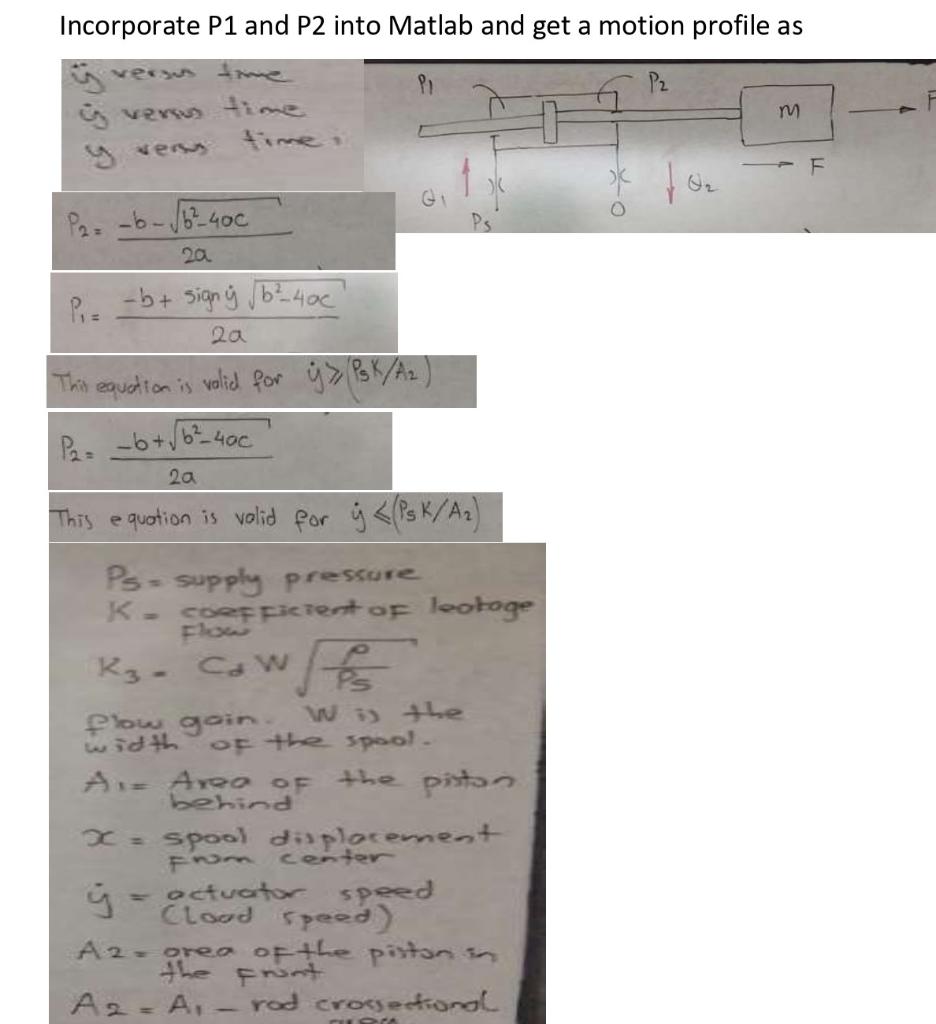 Incorporate P1 and P2 into Matlab and get a motion profile as
ÿ versus time
ẏ versus time
y versus time :
P1
P2
m
F
F
Q1
Ps
O
Q2
P2 = -b-√b²-4ac
2a
P1 = -b + sign ẏ √b²-4ac
2a
This equation is valid for ẏ ⩾ (PsK/A2)
P2 = -b+√b²-4ac
2a
This equation is valid for ẏ ⩽ (PsK/A2)
Ps = supply pressure
K = coefficient of leakage
flow
K3 = Cd W √ρ/Ps
flow gain. W is the
width of the spool.
A1 = Area of the piston
behind
x = spool displacement
from center
ẏ = actuator speed
(Load speed)
A2 = area of the piston in
the front
A2 = A1 - rod crossectional